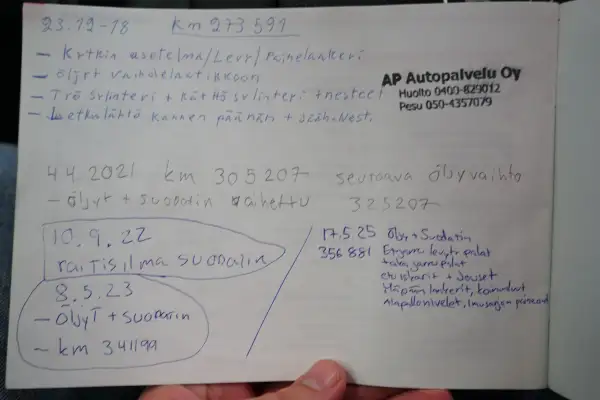 23.12-18 km 273 591
- Kytkin asetelma/Levy/Painelaakeri
- Öljyt vaihdelaatikkoon
- Työ sylinteri + käyttö sylinteri + nesteet
- Letkulähtö kannen päähän + Jääh.Nest.
AP Autopalvelu Oy
Huolto 0400-829012
Pesu 050-4357079
4.4.2021 km 305207 seuraava öljyvaihto
- öljyt + suodatin vaihettu 325207
10.9.22
raitisilma suodatin
8.5.23
- Öljyt + suodatin
- km 341199
17.5.25 Öljy + Suodatin
356 881 Etujarru levyt + palat
taka jarrupalat
etu iskarit + Jouset
Yläpään laakerit, koiranluut
Alapallonivelet,